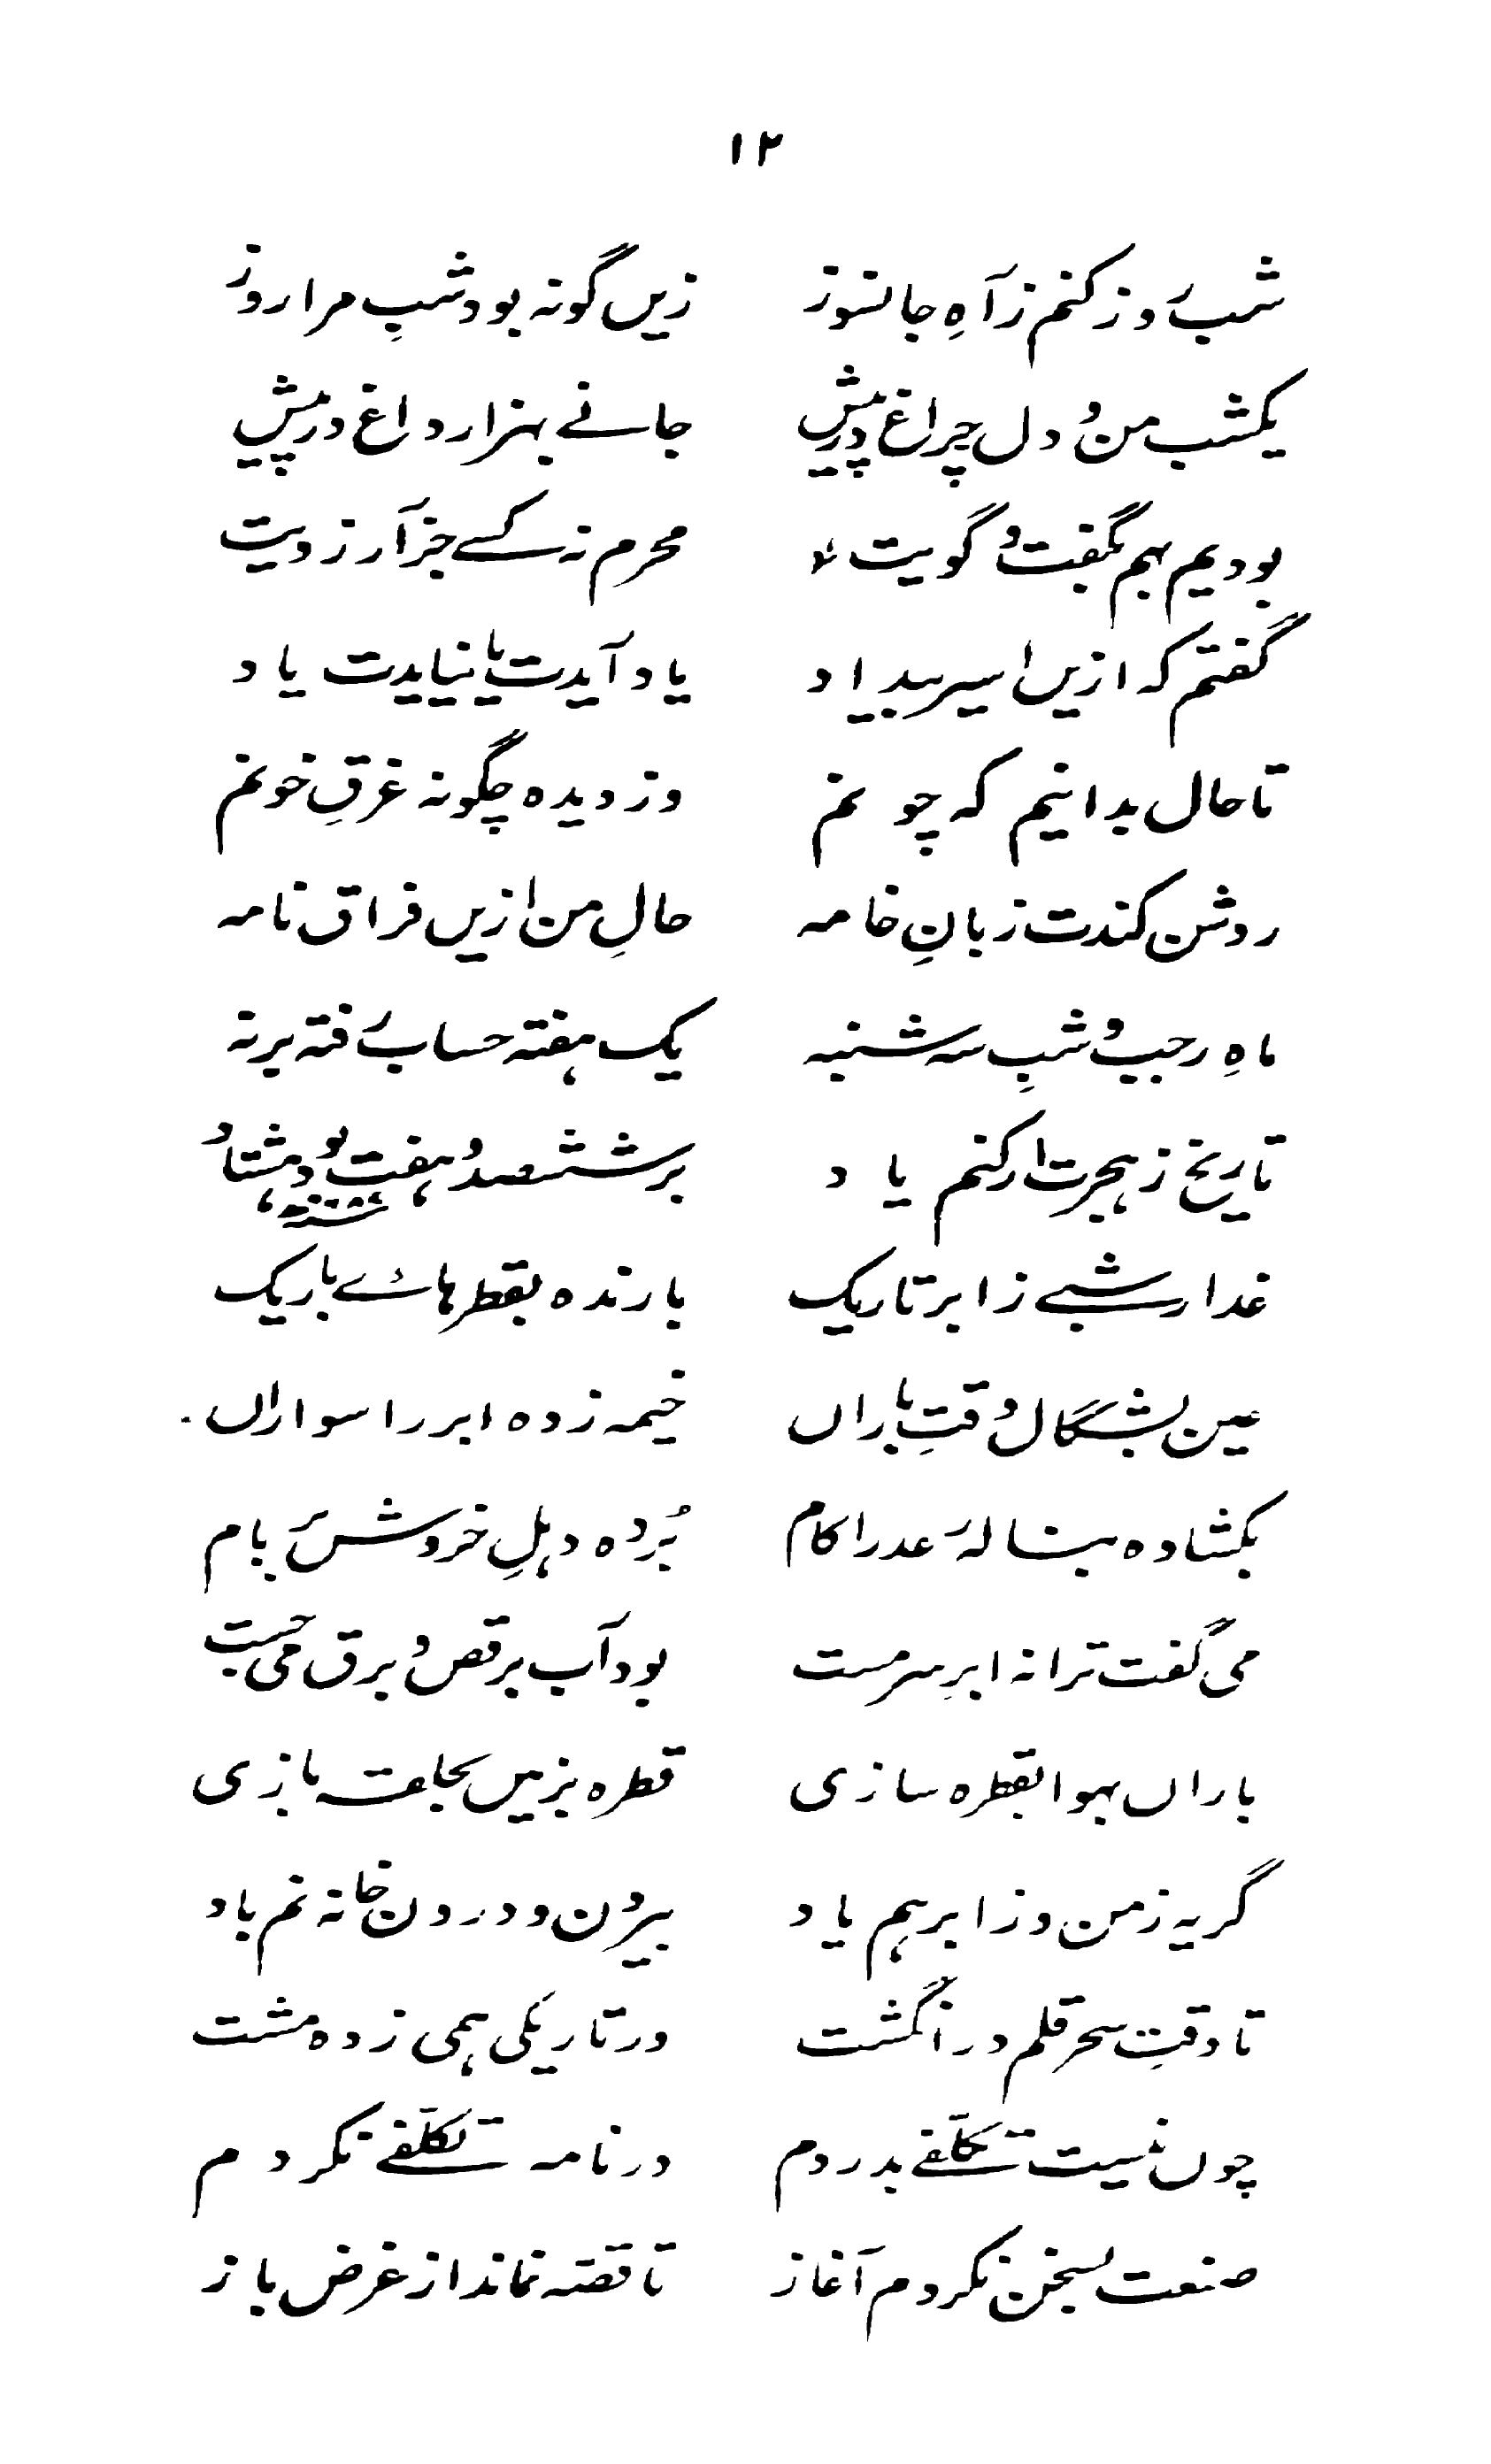 ۱۲
شب روز کنم ز آہِ جانسوز زیں گونہ بود شبِ مرا روز
یکشب من و دل چراغ در پیش جانے بہزار داغ در پیش
بودیم بہم بگفت و گویت محرم نہ کسے جز آرزویت
گفتم کہ ازیں اسیر بیداد یاد آیدت یا نیایدت یاد
تا حال بدانیم کہ چونم وز دیدہ چگونہ غرقِ خونم
روشن کندت زبانِ خامہ حالِ من ازیں فراق نامہ
ماہِ رجب و شبِ سہ شنبہ یک ہفتہ حساب رفتہ برنہ
تاریخ ز ہجرت ار کنم یاد بر ششصد و ہفت بود و ہشتاد
غدار شبے ز ابر تاریک بارندہ بقطرہائے باریک
عین بشگال و وقتِ باراں خیمہ زدہ ابر را سواراں
بکشادہ بنالہ رعد را کام بُردہ دہلِ خروش بر بام
می گفت ترانہ ابرِ سرمست بود آب برقص و برق می جست
باراں بہوا بقطرہ سازی قطرہ بزمیں بحلقہ بازی
گریہ ز من و ز ابر ہم یاد بیرون و درون خانہ نم باد
تا وقتِ سحر قلم در انگشت در تاریکی ہمی زدہ مشت
چوں نیست تکلّفے بدردم در نامہ تکلّفے نکردم
صنعت بسخن نکردم آغاز تا قصّہ نماند از غرض باز